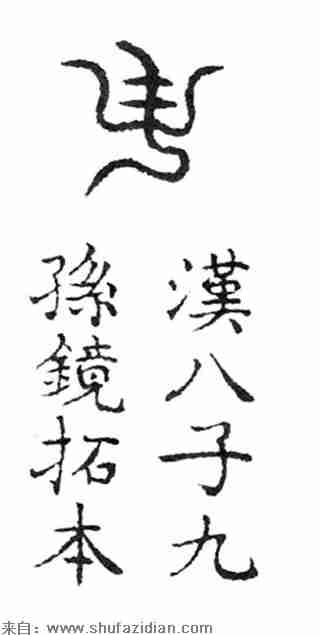 漢八子九
孫鏡拓本
来自：www.shufazidian.com